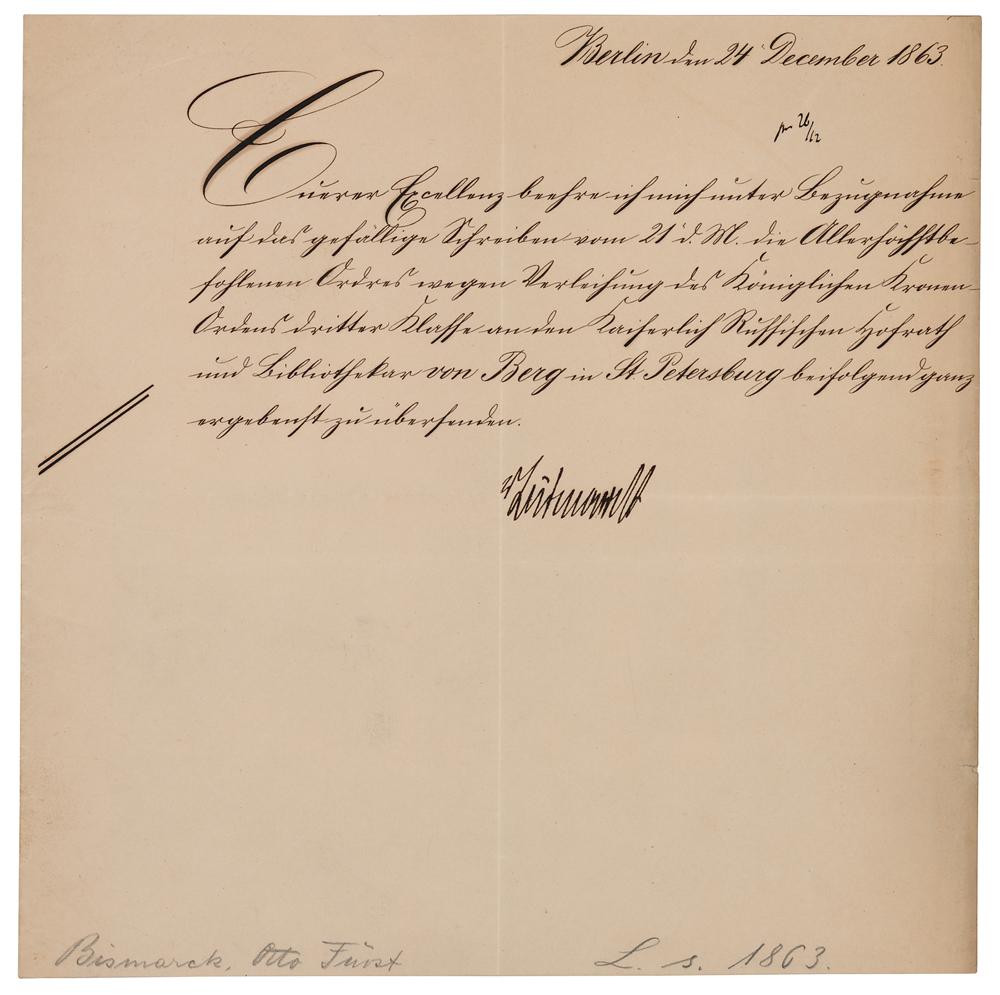 Berlin den 24 December 1863.
pr 26/12
Euerer Excellenz beehre ich mich unter Bezugnahme
auf das gefällige Schreiben vom 21 d. M. die Allerhöchstbe-
fohlenen Ordres wegen Verleihung des Königlichen Kronen-
Ordens dritter Klasse an den Kaiserlich Russischen Hofrath
und Bibliothekar von Berg in St. Petersburg beifolgend ganz
ergebenst zu übersenden.
vBismarck
Bismarck, Otto Fürst
L. s. 1863.